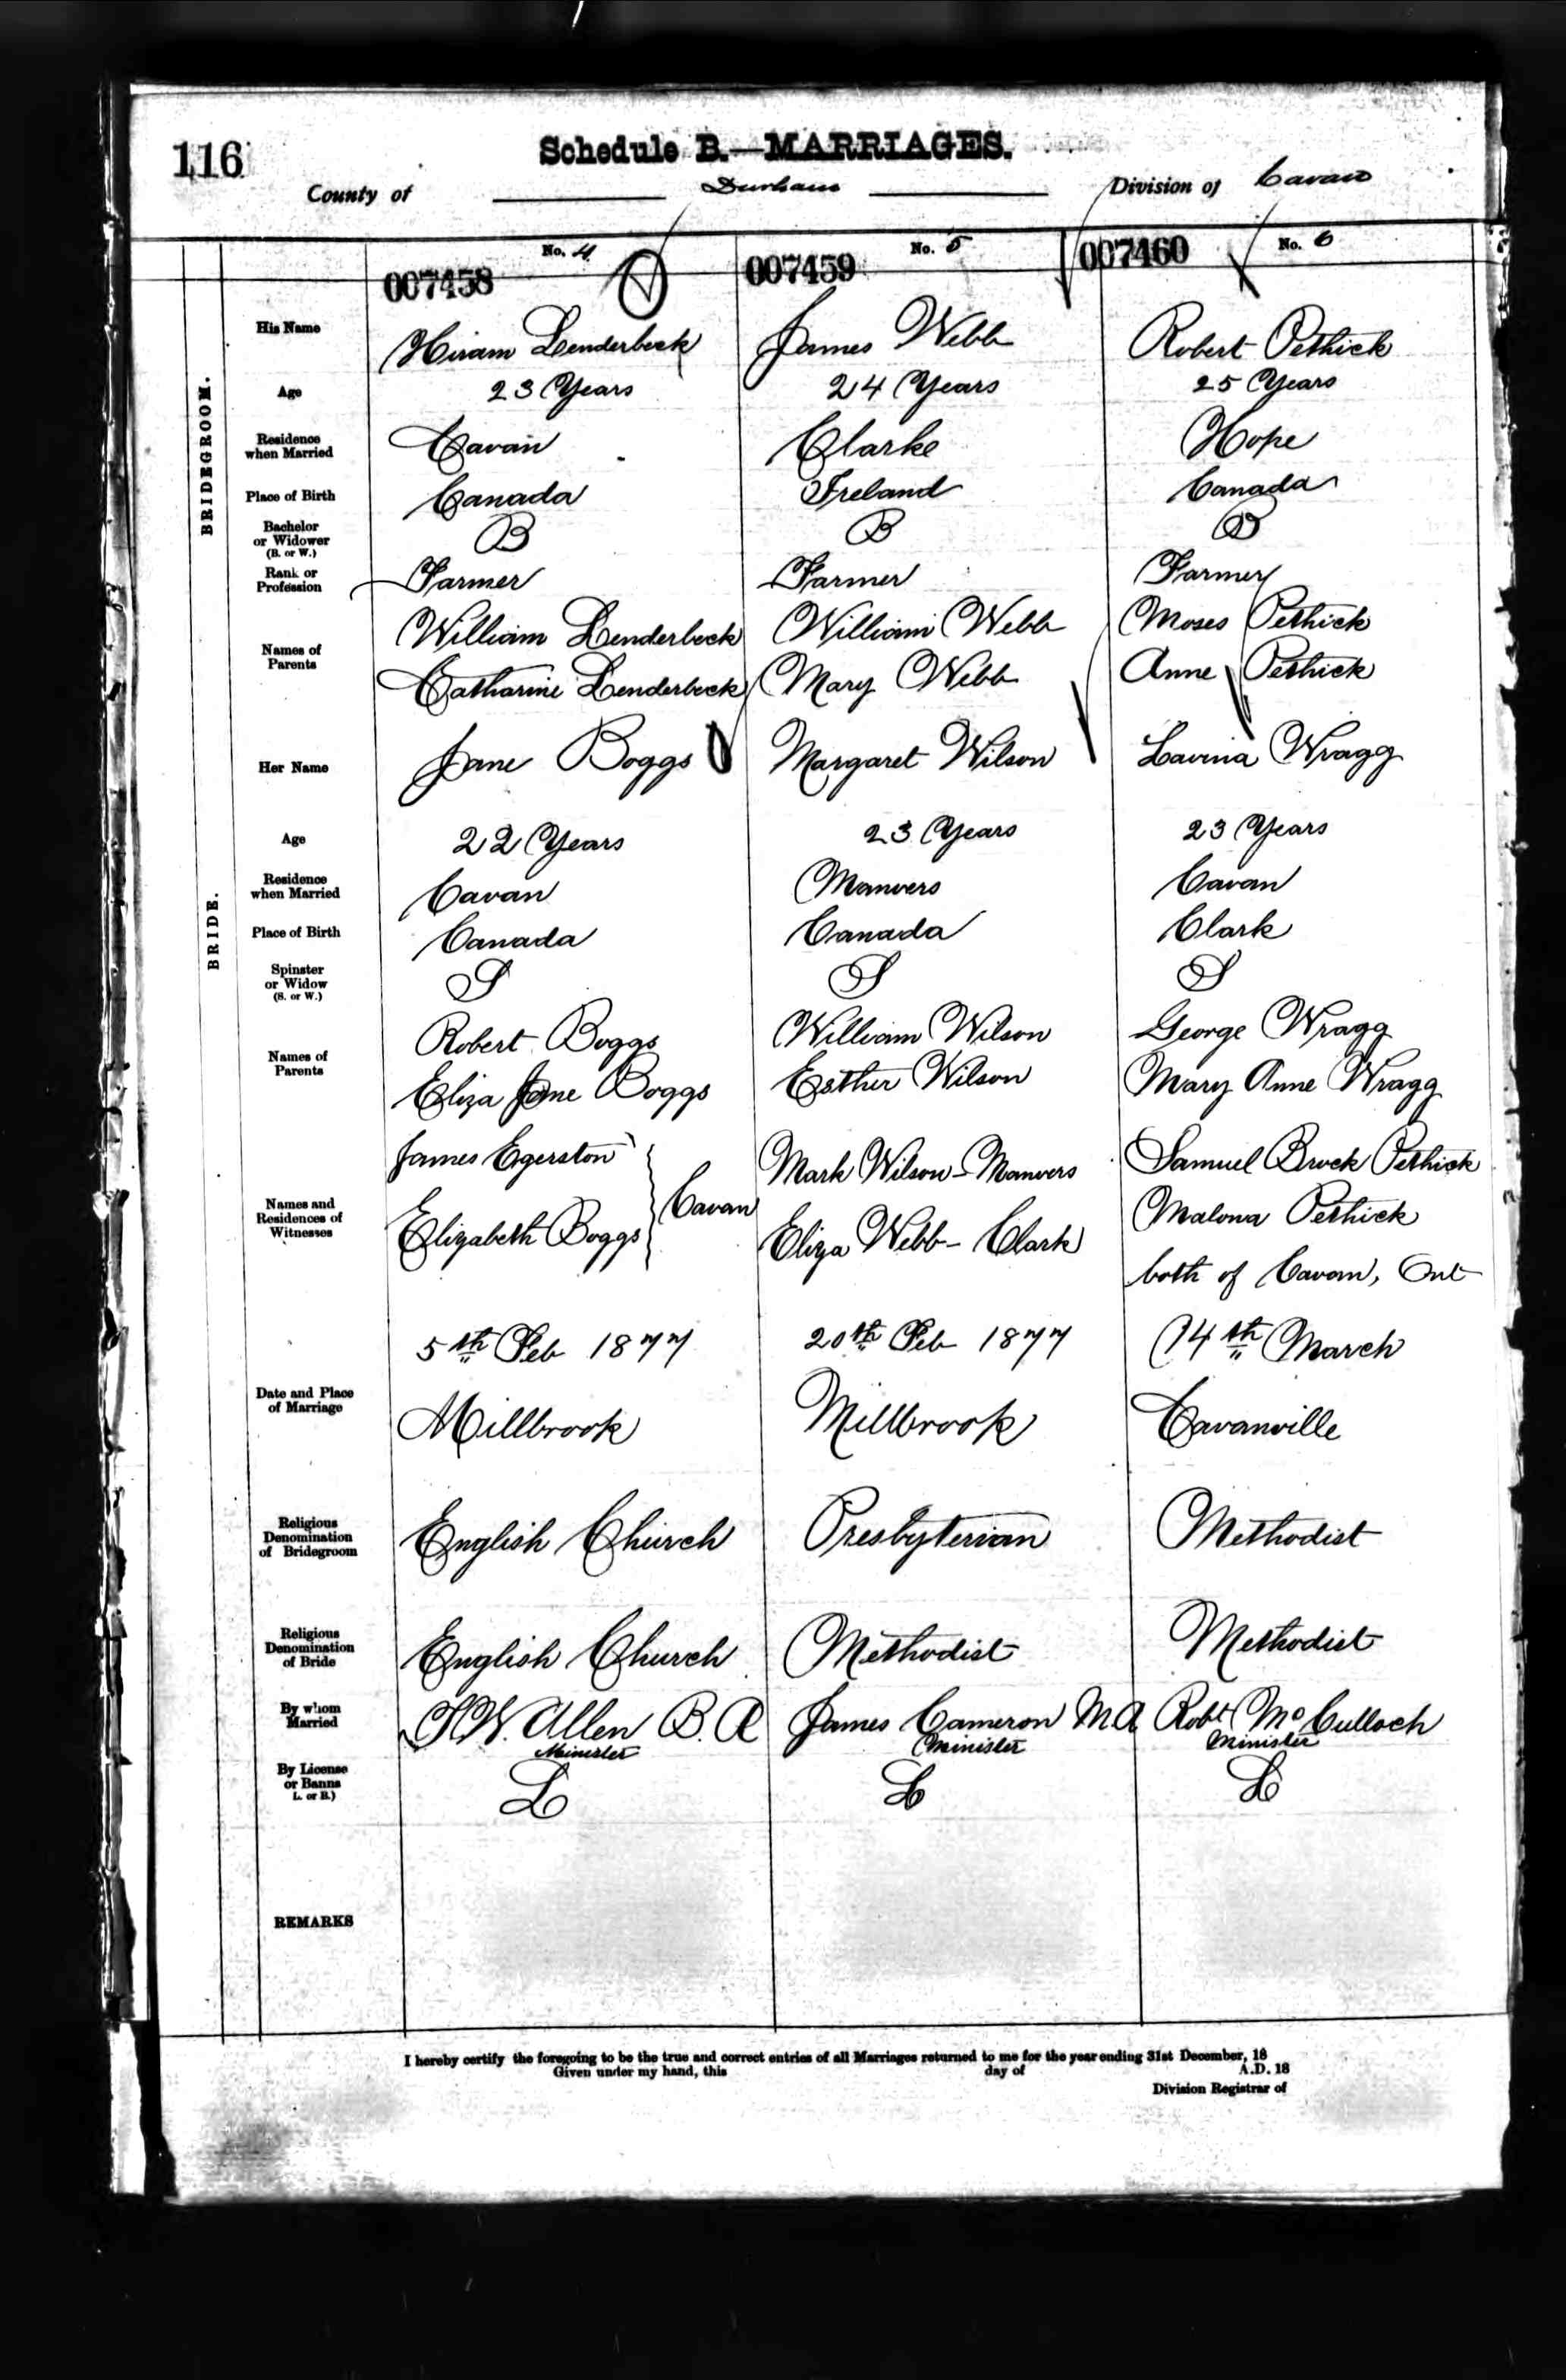 116
Schedule B.—MARRIAGES.
County of Durham Division of Cavan
No. 4 No. 5 No. 6
007458 007459 007460
BRIDEGROOM.
His Name Hiram Lenderbeck James Webb Robert Pethick
Age 23 Years 24 Years 25 Years
Residence when Married Cavan Clarke Hope
Place of Birth Canada Ireland Canada
Bachelor or Widower (B. or W.) B B B
Rank or Profession Farmer Farmer Farmer
Names of Parents William Lenderbeck William Webb Moses Pethick
Catharine Lenderbeck Mary Webb Anne Pethick
BRIDE.
Her Name Jane Boggs Margaret Wilson Lavina Wragg
Age 22 Years 23 Years 23 Years
Residence when Married Cavan Manvers Cavan
Place of Birth Canada Canada Clark
Spinster or Widow (S. or W.) S S S
Names of Parents Robert Boggs William Wilson George Wragg
Eliza Jane Boggs Esther Wilson Mary Anne Wragg
Names and Residences of Witnesses James Egerston Mark Wilson - Manvers Samuel Brock Pethick
Elizabeth Boggs Cavan Eliza Webb - Clark Malona Pethick
both of Cavan, Ont
Date and Place of Marriage 5th Feb 1877 20th Feb 1877 14th March
Millbrook Millbrook Cavanville
Religious Denomination of Bridegroom English Church Presbyterian Methodist
Religious Denomination of Bride English Church Methodist Methodist
By whom Married W. Allen B. A James Cameron M.A Robt McCulloch
Minister Minister Minister
By License or Banns L. or B.) L L L
REMARKS
I hereby certify the foregoing to be the true and correct entries of all Marriages returned to me for the year ending 31st December, 18
Given under my hand, this day of A.D. 18
Division Registrar of